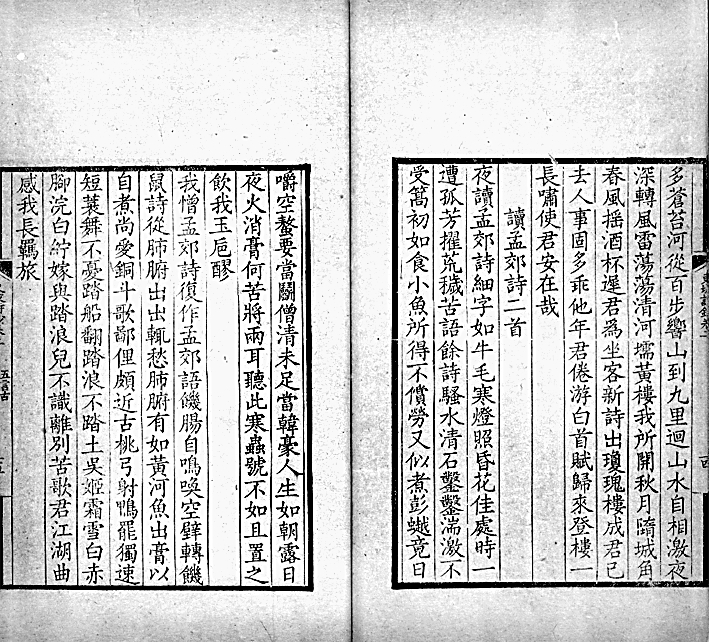 多蒼苔河從百步響山到九里迴山水自相激夜
深轉風雷蕩蕩清河壖黃樓我所開秋月隋城角
春風搖酒杯遲君為坐客新詩出瓊瑰樓成君已
去人事固多乖他年君倦游白首賦歸來登樓一
長嘯使君安在哉
讀孟郊詩二首
夜讀孟郊詩細字如牛毛寒燈照昏花佳處時一
遭孤芳擢荒穢苦語餘詩騷水清石鑿鑿湍激不
受篙初如食小魚所得不償勞又似煮彭𧑅竟日
嚼空螯要當鬭僧清未足當韓豪人生如朝露日
夜火消膏何苦將兩耳聽此寒蟲號不如且置之
飲我玉巵醪
我憎孟郊詩復作孟郊語饑腸自鳴喚空壁轉饑
鼠詩從肺腑出出輒愁肺腑有如黃河魚出膏以
自煮尚愛銅斗歌鄙俚頗近古桃弓射鴨罷獨速
短蓑舞不憂踏船翻踏浪不踏土吳姬霜雪白赤
腳浣白紵嫁與踏浪兒不識離別苦歌君江湖曲
感我長羈旅